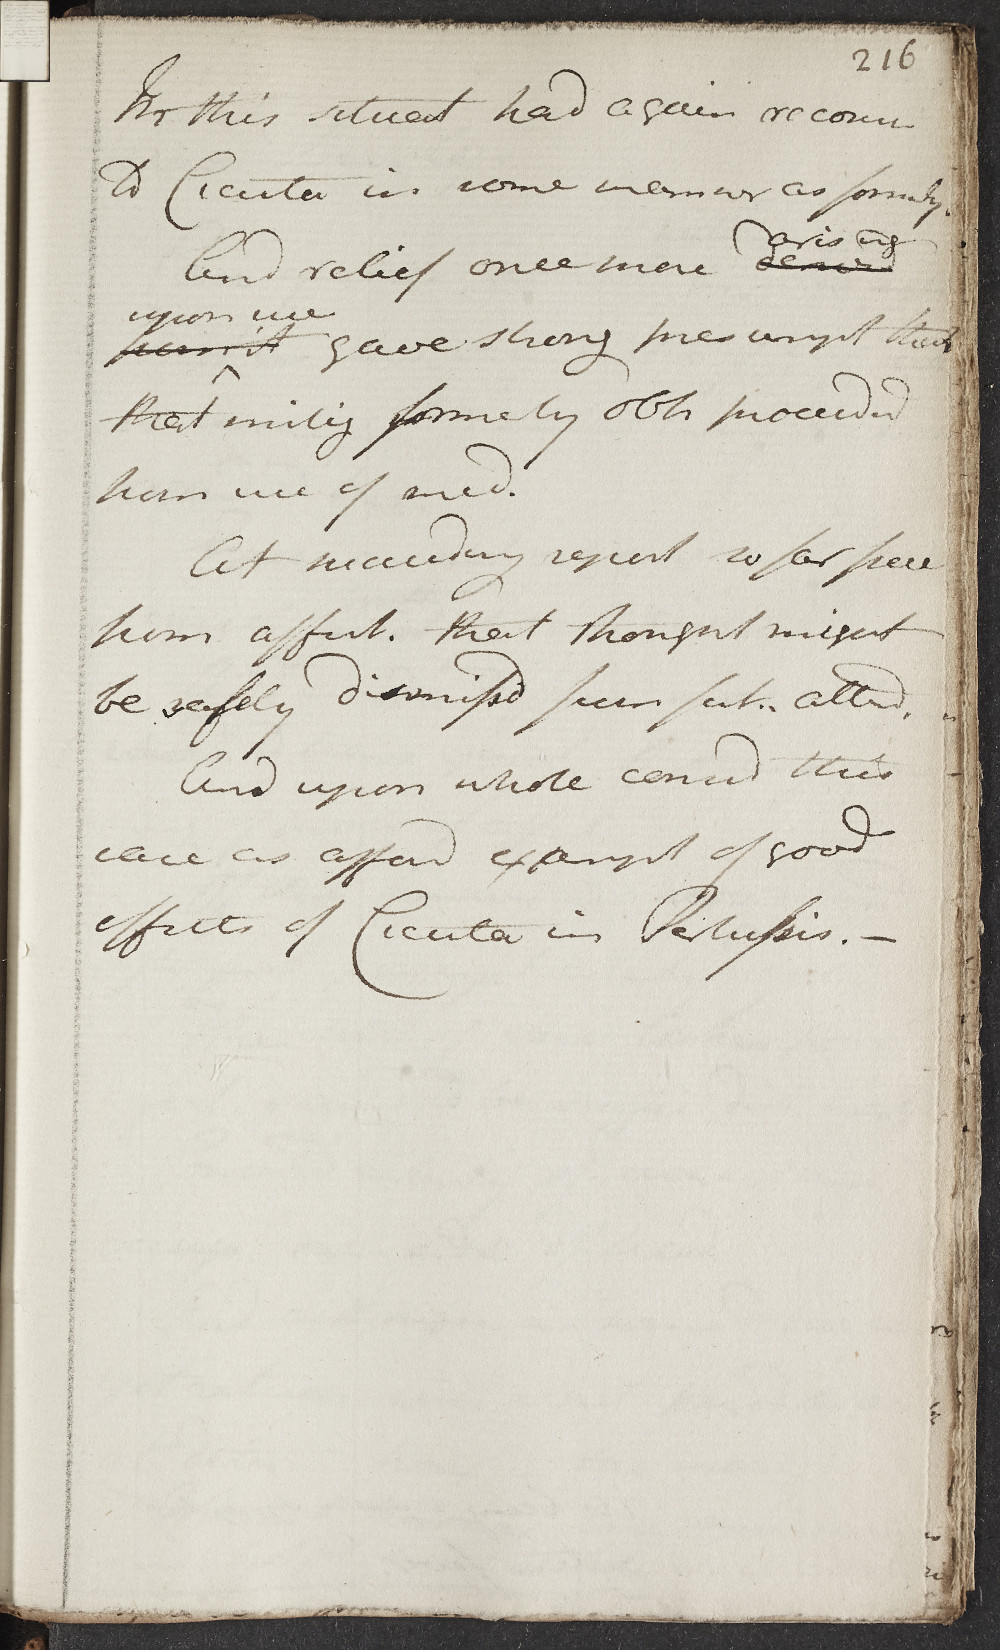 216
In this situat had again recours
to Cicuta in same manner as formerly.
And relief once more arising derived
upon use from it gave strong presumpt that
that mitig formerly obs proceeded
from use of med.
At succeeding report so far free
from affect. that thought might
be safely dismiss'd from furt. attend.
And upon whole consid this
case as afford exempl of good
effects of Cicuta in Pertussis. —